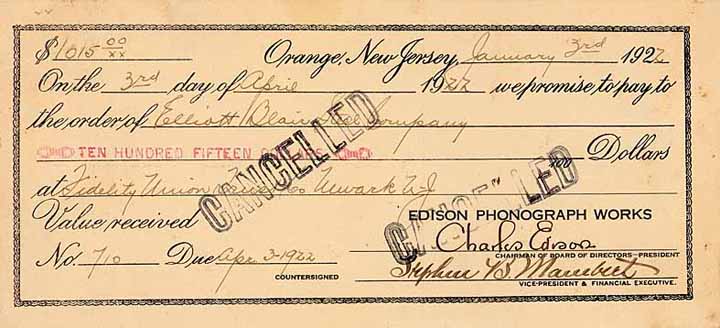 $1015 00/xx Orange, New Jersey, January 3rd 1922
On the 3rd day of April 1922 we promise to pay to
the order of Elliott Blair Company
TEN HUNDRED FIFTEEN DOLLARS xx/100 Dollars
at Fidelity Union Trust Co Newark N.J
CANCELLED
CANCELLED
Value received
EDISON PHONOGRAPH WORKS
Charles Edison
CHAIRMAN OF BOARD OF DIRECTORS-PRESIDENT
No. 710 Due Apr 3-1922
COUNTERSIGNED
Stephen B. Mambert
VICE-PRESIDENT & FINANCIAL EXECUTIVE.